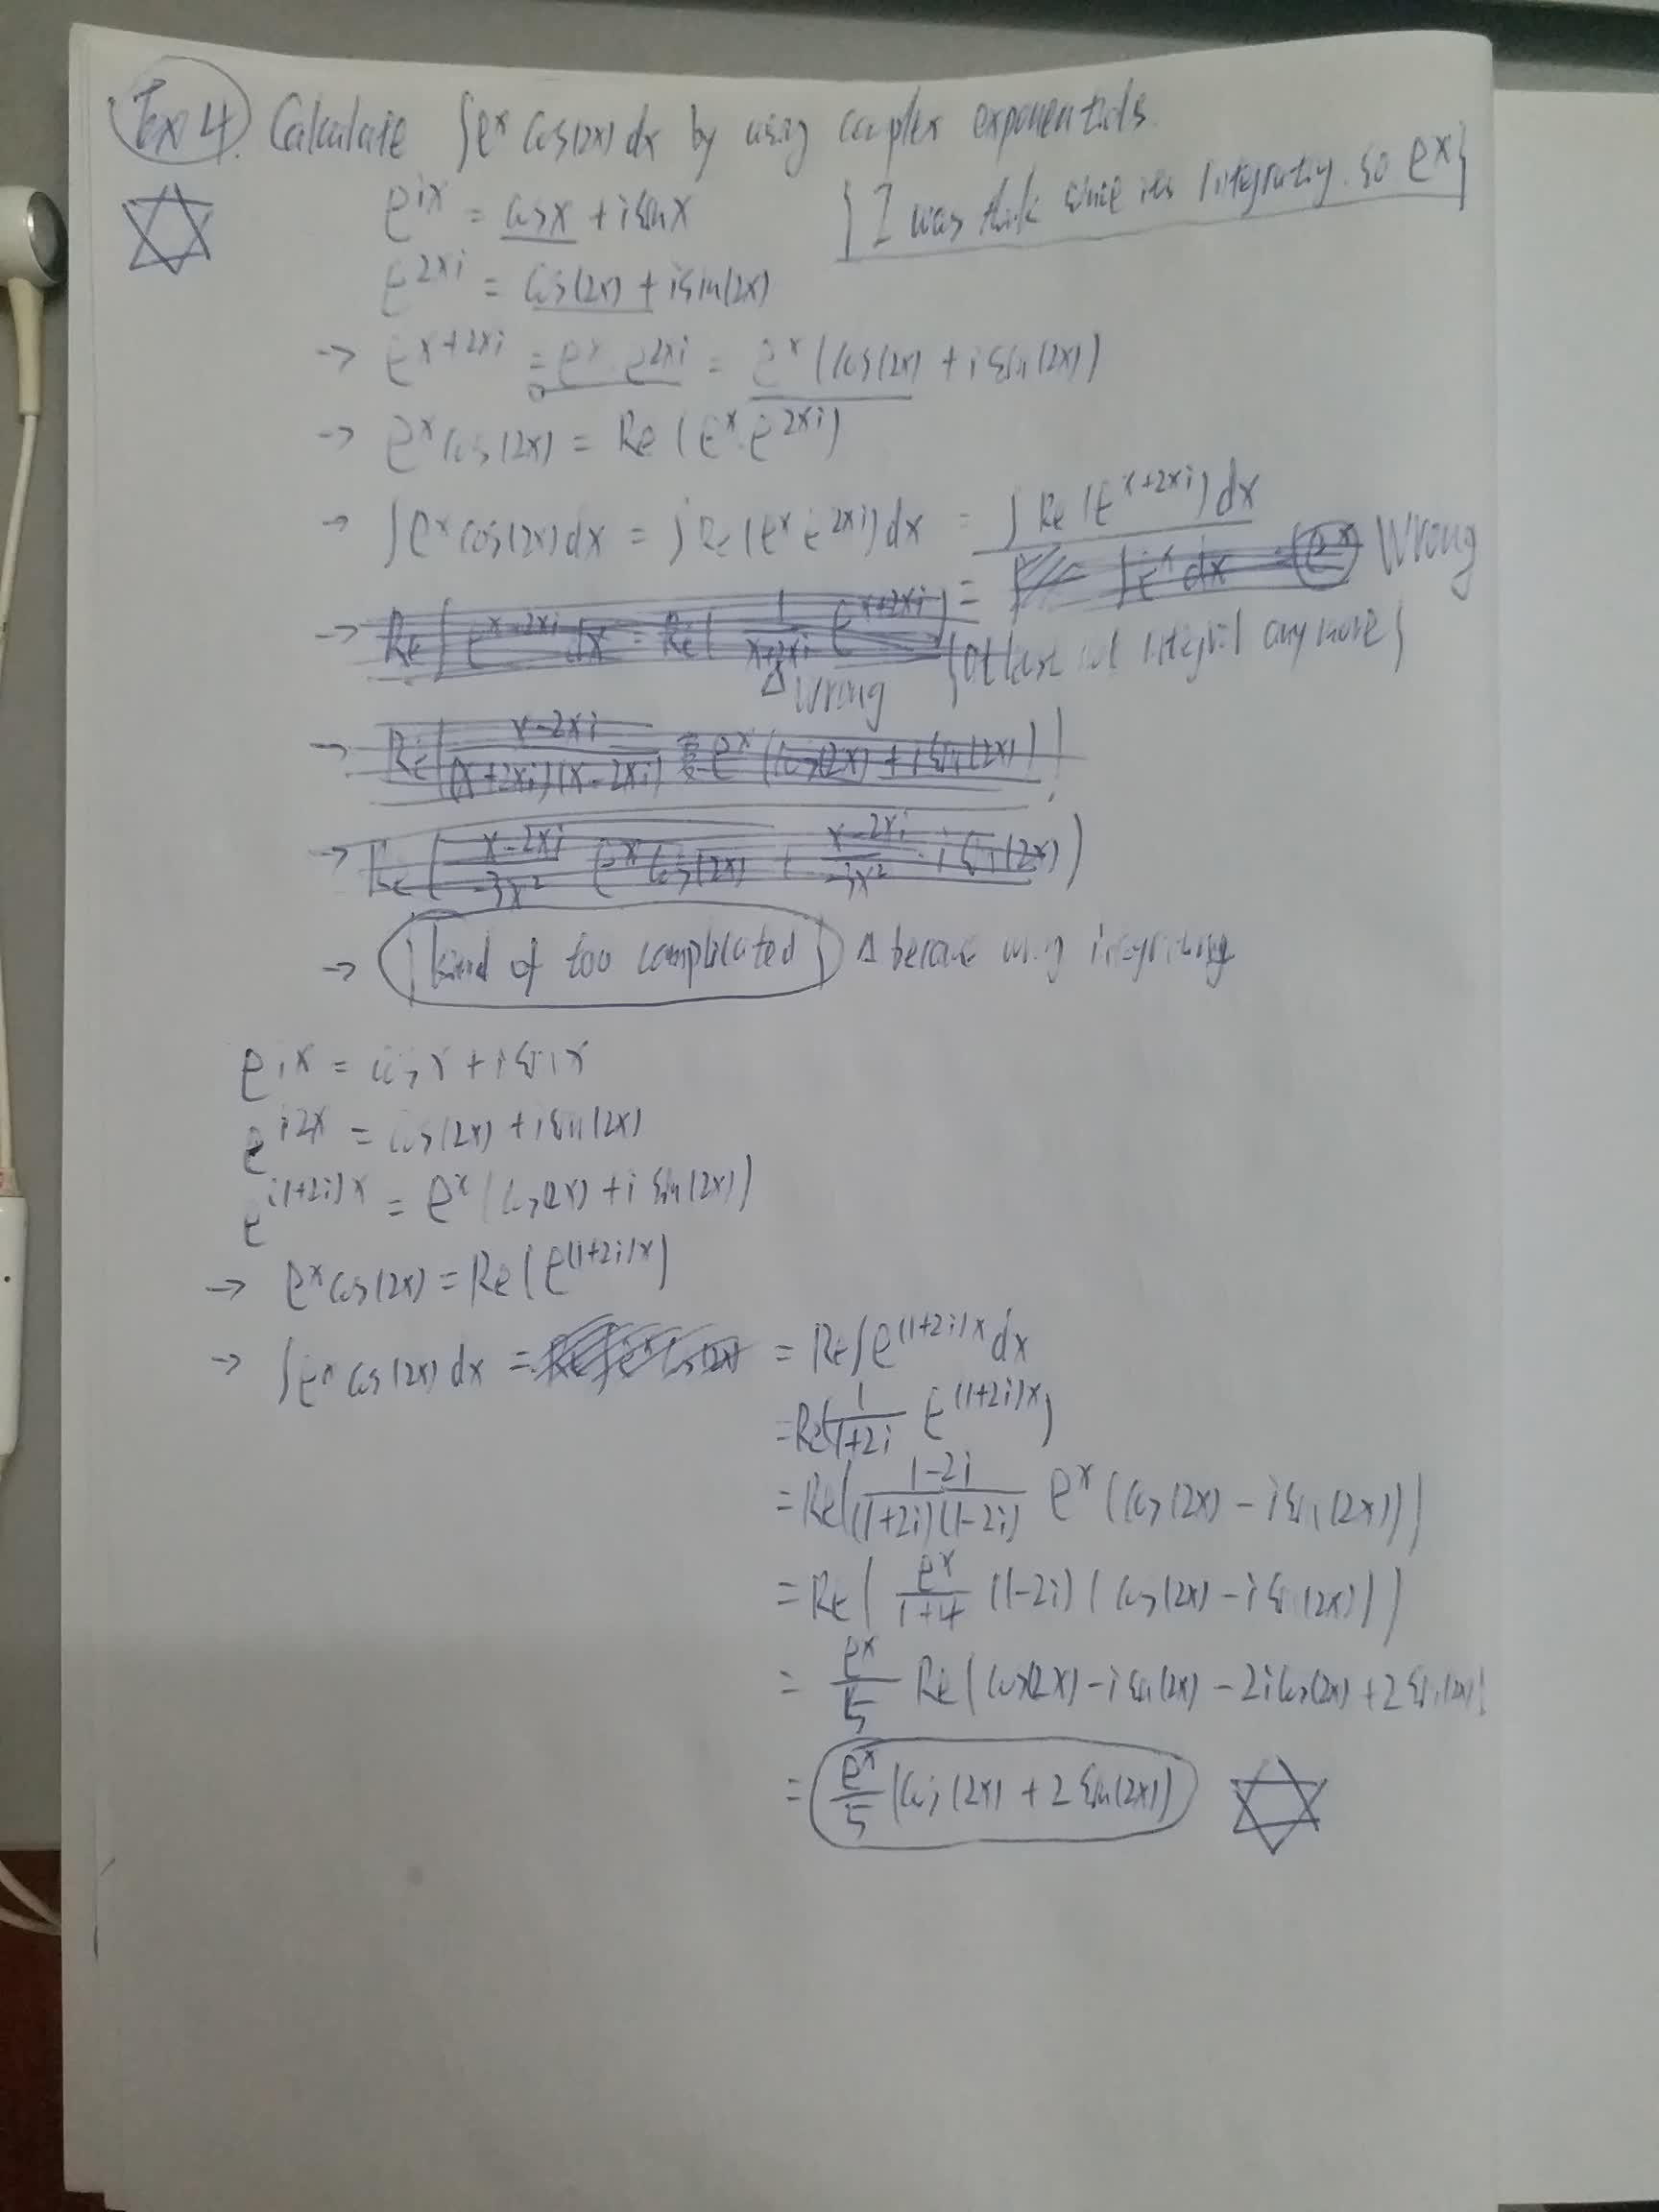 Ex 4. Calculate ∫e^x cos(2x) dx by using complex exponentials.
e^{ix} = cos x + i sin x {I was think since it's integrating. so e^x}
e^{2xi} = cos(2x) + i sin(2x)
→ e^{x+2xi} = e^x · e^{2xi} = e^x (cos(2x) + i sin(2x))
→ e^x cos(2x) = Re (e^x · e^{2xi})
→ ∫e^x cos(2x) dx = ∫Re (e^x e^{2xi}) dx = ∫ Re (e^{x+2xi}) dx
= ∫e^x dx e^x Wrong
→ Re ∫ e^{x-2xi} dx = Re( 1/(x+2xi) e^{x+2xi} )
Δ Wrong {at least not integral any more}
→ Re( (x-2xi)/((x+2xi)(x-2xi)) e^x (cos(2x) + i sin(2x)) )
→ Re( (x-2xi)/(-3x^2) e^x cos(2x) + (x-2xi)/(-3x^2) · i sin(2x) )
→ {kind of too complicated} Δ because wrong integrating
e^{ix} = cos x + i sin x
e^{i2x} = cos(2x) + i sin(2x)
e^{i(1+2i)x} = e^x (cos(2x) + i sin(2x))
→ e^x cos(2x) = Re (e^{(1+2i)x})
→ ∫e^x cos(2x) dx = Re ∫e^x cos(2x) = Re ∫e^{(1+2i)x} dx
= Re( 1/(1+2i) e^{(1+2i)x} )
= Re( (1-2i)/((1+2i)(1-2i)) e^x (cos(2x) - i sin(2x)) )
= Re( e^x/(1+4) (1-2i) (cos(2x) - i sin(2x)) )
= e^x/5 Re (cos(2x) - i sin(2x) - 2i cos(2x) + 2 sin(2x))
= e^x/5 (cos(2x) + 2 sin(2x))